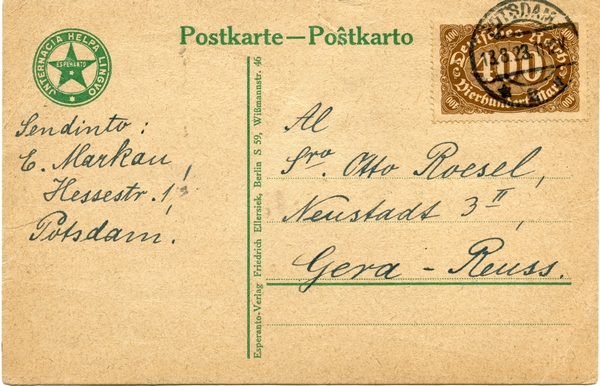 INTERNACIA HELPA LINGVO
ESPERANTO
Postkarte — Poŝtkarto
POTSDAM
13.8.23
400 400
Deutsches Reich
400
Vierhundert Mark
400 400
Sendinto:
E. Markau,
Hessestr. 1,
Potsdam.
Esperanto-Verlag Friedrich Ellersiek, Berlin S 59, Wißmannstr. 46
Al
Sro. Otto Roesel,
Neustadt 3 II,
Gera - Reuss.